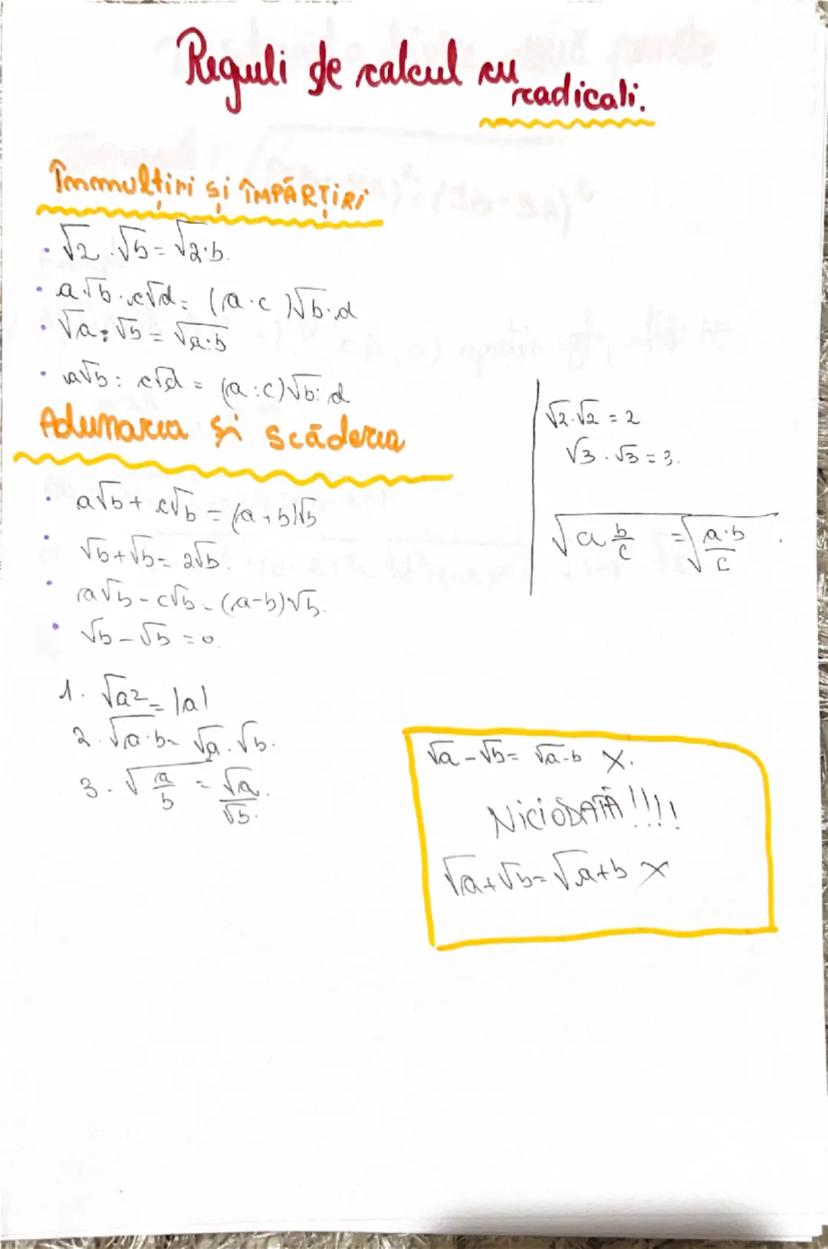 Reguli de calcul cu
radicali.
Înmulțiri și ÎMPĂRȚIRI
• √2 · √b = √2·b.
• a√b · c√d = (a·c)√b·d
• √a : √b = √a·b
• a√b : c√d = (a:c)√b:d
Adunarea și scăderea
• a√b + c√b = (a+b)√b
• √b + √b = 2√b.
• a√b - c√b = (a-b)√b.
• √b - √b = 0.
1. √a² = |a|
2. √a·b = √a · √b.
3. √a/b = √a/√b.
√2·√2 = 2
√3 · √3 = 3.
√a b/c = √a·b/c .
√a - √b = √a-b X.
NICIODATĂ!!!!
√a + √b = √a+b X